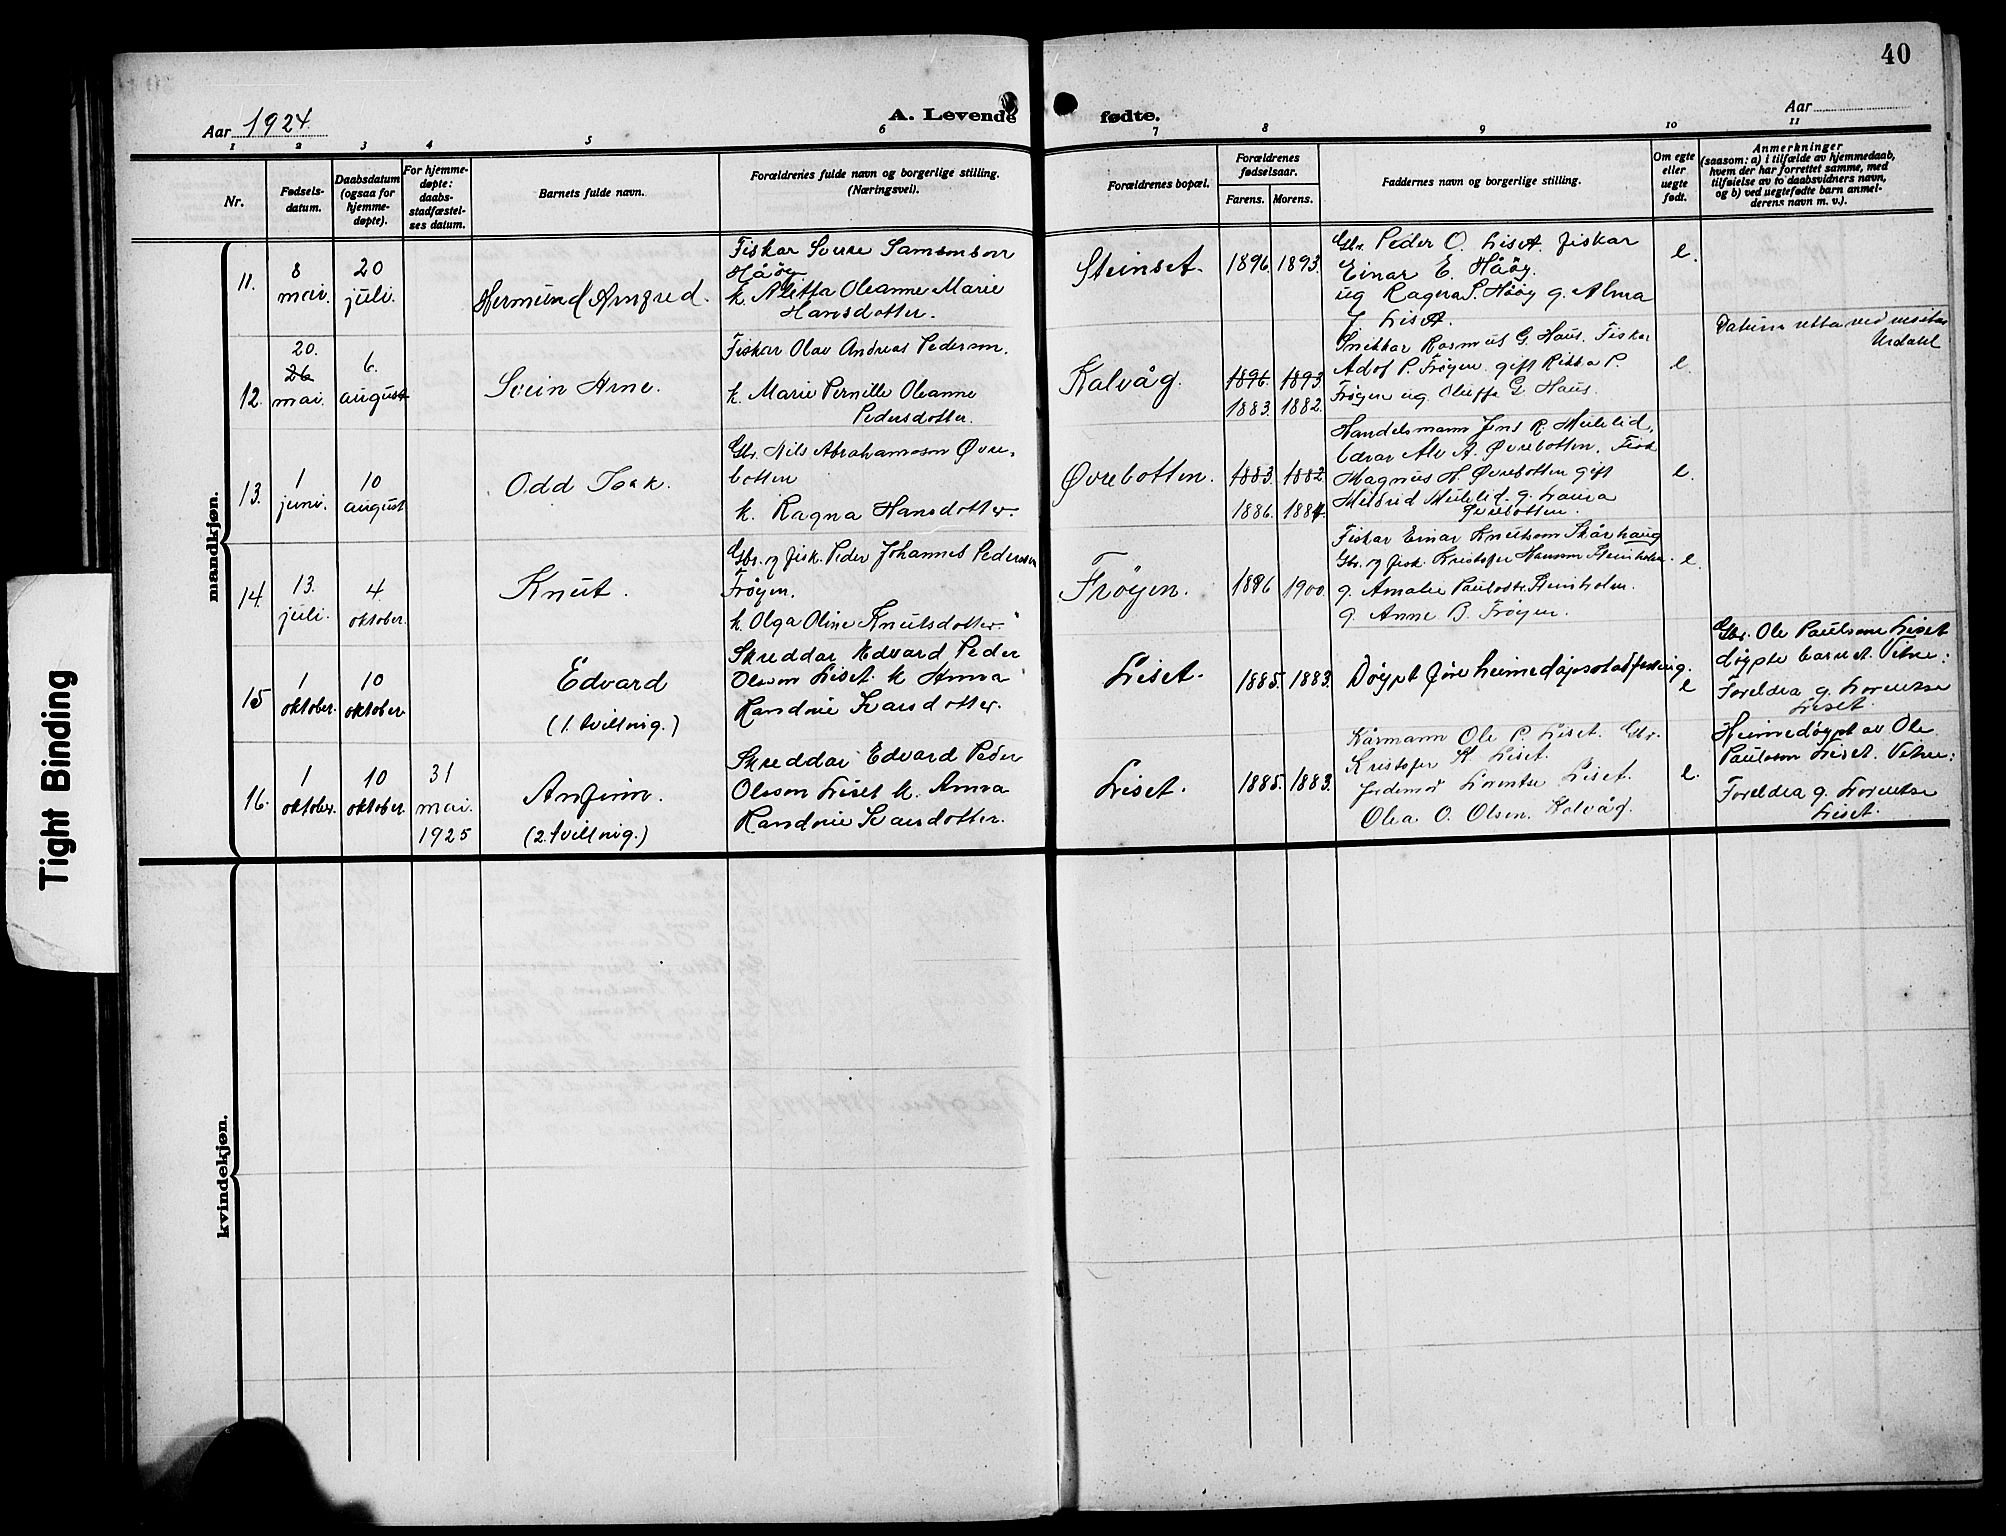 40
Aar 1924.
A. Levende fødte.
Aar
1 2 3 4 5 6 7 8 9 10 11
Nr.
Fødsels-
datum.
Daabsdatum
(ogsaa for
hjemme-
døpte).
For hjemme-
døpte:
daabs-
stadfæstel-
ses datum.
Barnets fulde navn.
Forældrenes fulde navn og borgerlige stilling.
(Næringsvei).
Forældrenes bopæl.
Forældrenes
fødselsaar.
Farens. Morens.
Faddernes navn og borgerlige stilling.
Om egte
eller
uegte
født.
Anmerkninger
(saasom: a) i tilfælde av hjemmedaab,
hvem der har forrettet samme, med
tilføielse av to daabsvidners navn,
og b) ved uegtefødte barn anmel-
derens navn m. v.).
mandkjøn.
11.
8
mai.
20
juli.
Hermund Arnfred.
Fiskar Sverre Samsonson
Hååy
k. Aletta Oleanne Marie
Hansdotter.
Steinset.
1896. 1893.
Gbr. Peder O. Liset. fiskar
Einar E. Hååy.
ug Ragna S. Hååy g. Alma
J. Liset.
e.
12.
20.
26
mai.
6.
august
Svein Arne.
Fiskar Olav Andreas Pederson.
k. Marie Pernille Oleanne
Pedersdotter.
Kalvåg.
1896. 1893.
1883. 1882.
Snikkar Rasmus G. Haus. Fiskar
Adof P. Frøyen. gift Rikka P.
Frøyen ug. Oliffa G. Haus.
e.
Datum retta ved
Urdahl
13.
1
juni.
10
august
Odd Isak.
Gbr. Nils Abrahamson Øvre-
botten
k. Ragna Hansdotter.
Øvrebotten.
1883. 1882
1886. 1884.
Handelsmann Jens R. Myklid,
Alv A. Øvrebotten. Fisk
Magnus H. Øvrebotten gift
Mildrid g. Laura
Øvrebotten.
e.
14.
13.
juli.
4
oktober.
Knut.
Gbr. og fisk. Peder Johannes Pederson
Frøyen.
k. Olga Oline Knutsdotter.
Frøyen.
1896 1900.
Fiskar Einar Knutson Skårhaug
Gbr. og fisk. Kristofer Hanson Steinholm.
g. Amalie Paulsdtr. Steinholm.
g. Anne B. Frøyen.
e.
15
1
oktober.
10
oktober.
Edvard
(1. tvilling.)
Skreddar Edvard Peder
Olsson Liset. k. Anna
Randine Larsdotter.
Liset.
1885. 1883.
Døypt før heimedåpsstadfesting.
e
Gbr. Ole Paulson Liset
døypte barnet. Vitne:
Foreldra g. Lorentse
Liset.
16.
1
oktober.
10
oktober.
31
mai.
1925
Anfinn.
(2. tvilling.)
Skreddar Edvard Peder
Olsson Liset k. Anna
Randine Larsdotter.
Liset.
1885. 1883.
Kårmann Ole P. Liset. Gbr.
Kristofer H. Liset.
jordmor Lorentse Liset.
Olea O. Olsen. Kalvåg.
e.
Heimedøypt av Ole
Paulson Liset. Vitne:
Foreldra g. Lorentse
Liset.
kvindekjøn.
Tight Binding